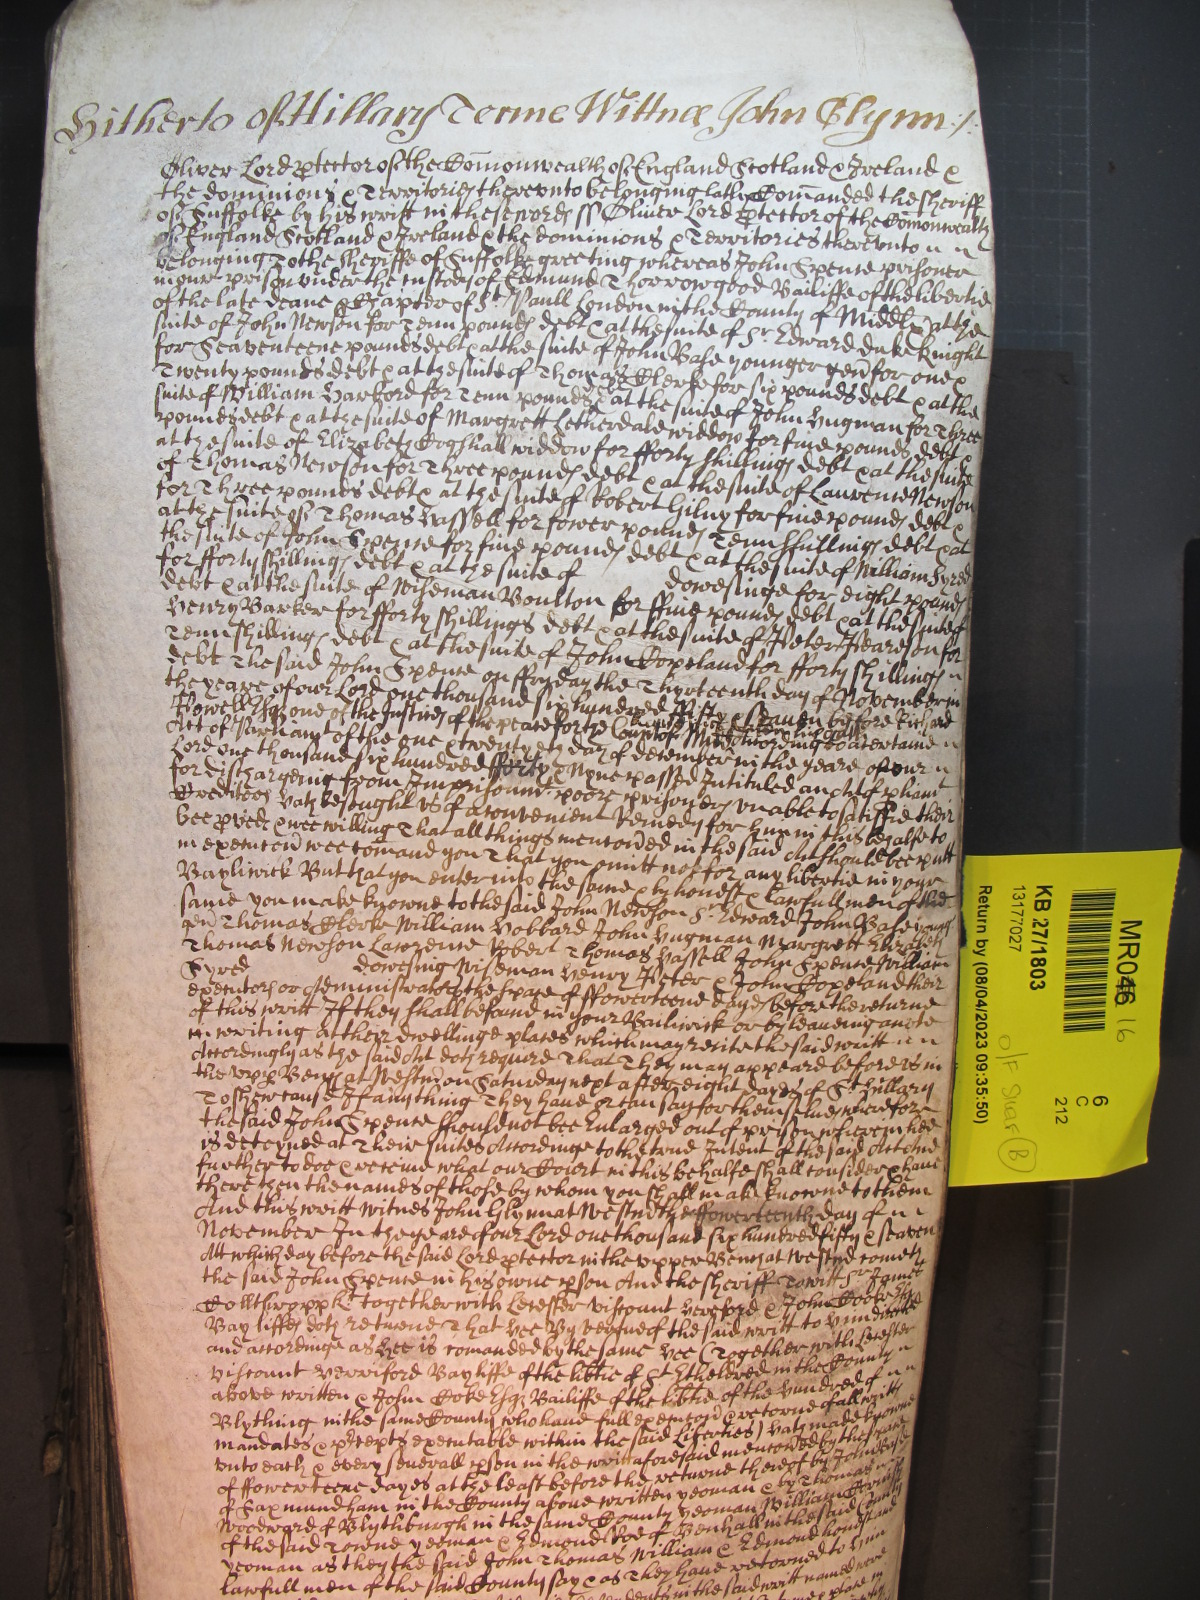 Hitherto of Hillary Terme Wittnes John Glynn:/.
Oliver Lord ptector of the Comonwealth of England Scotland & Ireland &
the dominions & Territories therevnto belonging lately Comanded the sheriff
of Suffolke by his writt in these words ss Oliver Lord ptector of the Comonwealth
of England Scotland & Ireland & the dominions & Territories therevnto
belonging To the sheriffe of Suffolke greeting whereas John Spense prisoner
in our prison vnder the custody of Edmund Thorrowgood Bailiffe of the libertie
of the late deane & Chapter of St Paull London in the County of Middx at the
suite of John Newson for Tenn pounds debt & at the suite of Sr Edward duke knight
for Seaventeene pounds debt & at the suite of John Base younger gen for one &
Twenty pounds debt & at the suite of Thomas Clerke for six pounds debt & at the
suite of William for Tenn pounds & at the suite of John Lugman for Three
pounds debt & at the suite of Margrett Letherdale widdow for fiue pounds debt &
at the suite of Elizabeth Cogshall widdow for fforty shillings debt & at the suite
of Thomas Newson for Three pounds debt & at the suite of Laurence Newson
for Three pounds debt & at the suite of Robert Gilny for fiue pounds debt &
at the suite of Thomas Vassell for fower pounds Tenn shillings debt & at
the suite of John Spense for fiue pounds debt & at the suite of William Syred
for fforty shillings debt & at the suite of dowessinge for eight pounds
debt & at the suite of Wiseman Boulton for ffiue pounds debt & at the suite of
Henry Barker for fforty shillings debt & at the suite of Peter Pearson for
Tenn shillings debt & at the suite of John Copeland for fforty shillings
debt The said John Spense on ffryday the Thyrteenth day of November in
the yeare of our Lord one thousand six hundred fifty & seaven before Richard
Powell Esq one of the Justices of the peace for the County of Midd according to a certaine
Act of Parliamt of the one & twentyeth day of december in the yeare of our
Lord one thousand six hundred fforty & Nyne passed Intituled an act of pliamt
for dischargeing from Imprisonmt poore prisoners vnable to satisfie their
Creditors hath besought vs of a convenient Remedy for him in this behalfe to
bee pvided & wee willing That all things mentoned in the said Act should bee putt
in execucon wee comand you That you omitt not for any libertie in your
Bayliwick But that you enter into the same & by honest & lawfull men of the
same you make knowne to the said John Newson Sr Edward John Base young
gen Thomas Clerke William John Lugman Margrett Elizabeth
Thomas Newson Laurence Robert Thomas Vassell John Spense William
Syred dowesing Wiseman Henry Peter & John Copeland their
executors or Administrators the space of ffowerteene dayes before the returne
of this writt If they shall be found in your Bailiwick or by leaueing a note
in writing at their dwellinge places which may recite the said writt
Accordingly as the said Act doth require That They may appeare before vs in
the vpp Bench at Westmr on Saturday next after eight dayes of St Hillary
To shew cause If any thing They haue or can say for themselues wherefore
the said John Spense should not bee Enlarged out of prison wherein hee
is deteyned at Their suites Accordinge to the true Intent of the said Act And
further to doe & receiue what our Court in this behalfe shall consider & haue
there then the names of those by whom you shall make knowne to them
And this writt witnes John Glynn at Westmr the ffowerteenth day of
November In the yeare of our Lord one thousand six hundred fifty & seaven
Att which day before the said Lord ptector in the vpper Bench at Westmr cometh
the said John Spense in his owne pson And the sheriff To witt Sr James
together with Leiester Viscount Hereford & John Cooke Esq
Bayliffes doth returne That hee By vertue of the said writt to him directed
and accordinge as hee is comanded by the same hee (Together with Leiester
Viscount Herriford Bayliffe of the libtie of St Etheldred in the County
above written & John Coke Esq Bailiffe of the libtie of the hundred of
Blything in the same County who haue full execucon & retorne of all writts
mandates & precepts executable within the said Liberties) hath made knowne
vnto each & every severall pson in the writt aforesaid mencoed by the space
of ffowerteene dayes at the least before the returne thereof by John Base
of Saxmundham in the County above written yeoman & by Thomas
Woodward of Blythburgh in the same County yeoman William
of the said Towne yeoman & Edmond of Benhall in the said County
yeoman as they the said John Thomas William & Edmond honest and
lawfull men of the said County say & as They haue retorned to him
in the said writt named